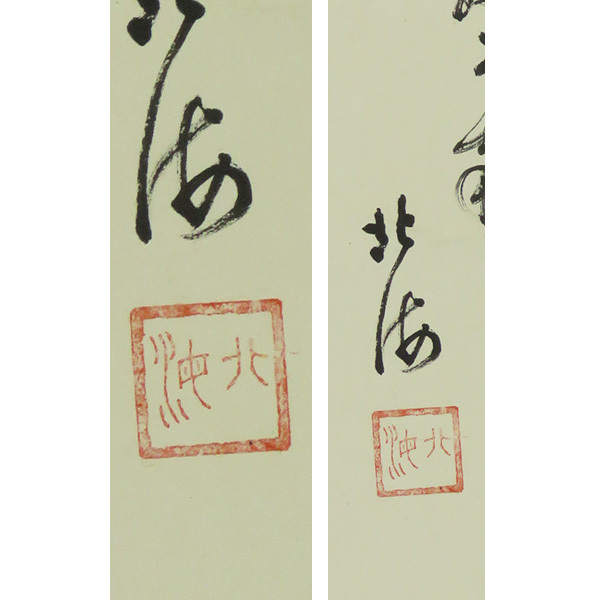 北海
北海
北海
北海